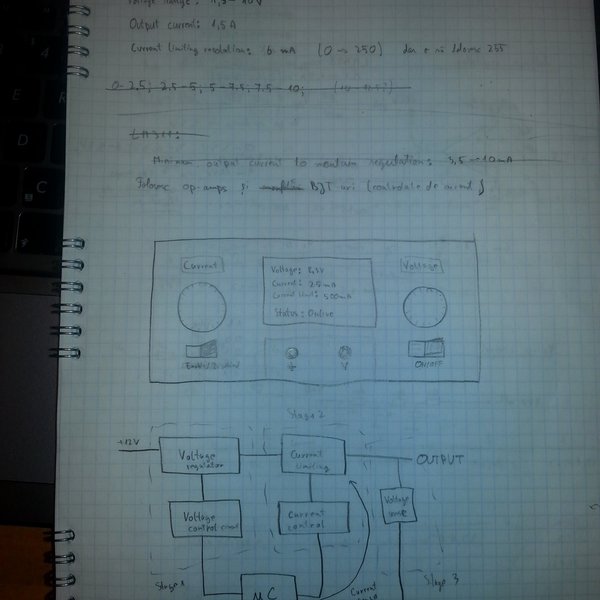 Voltage range: 1,5 - 10V
Output current: 1,5A
Current limiting resolution: 6 mA (0 -> 250) dar e ni folosesc 255
0-2,5; 2,5-5; 5-7,5; 7,5-10;
Minimum output current to mentain regulation: 3,5 - 10mA
Folosesc op-amps și BJT uri (controlate de curent)
Current
Voltage: 8,5V
Current: 25mA
Current limit: 500mA
Status: Online
Voltage
Enabled/Disabled
ON/OFF
Stage 2
+12V
Voltage regulator
Current limiting
OUTPUT
Voltage control
Current control
Voltage sense
Stage 1
µC
Current
Stage 3
D
C